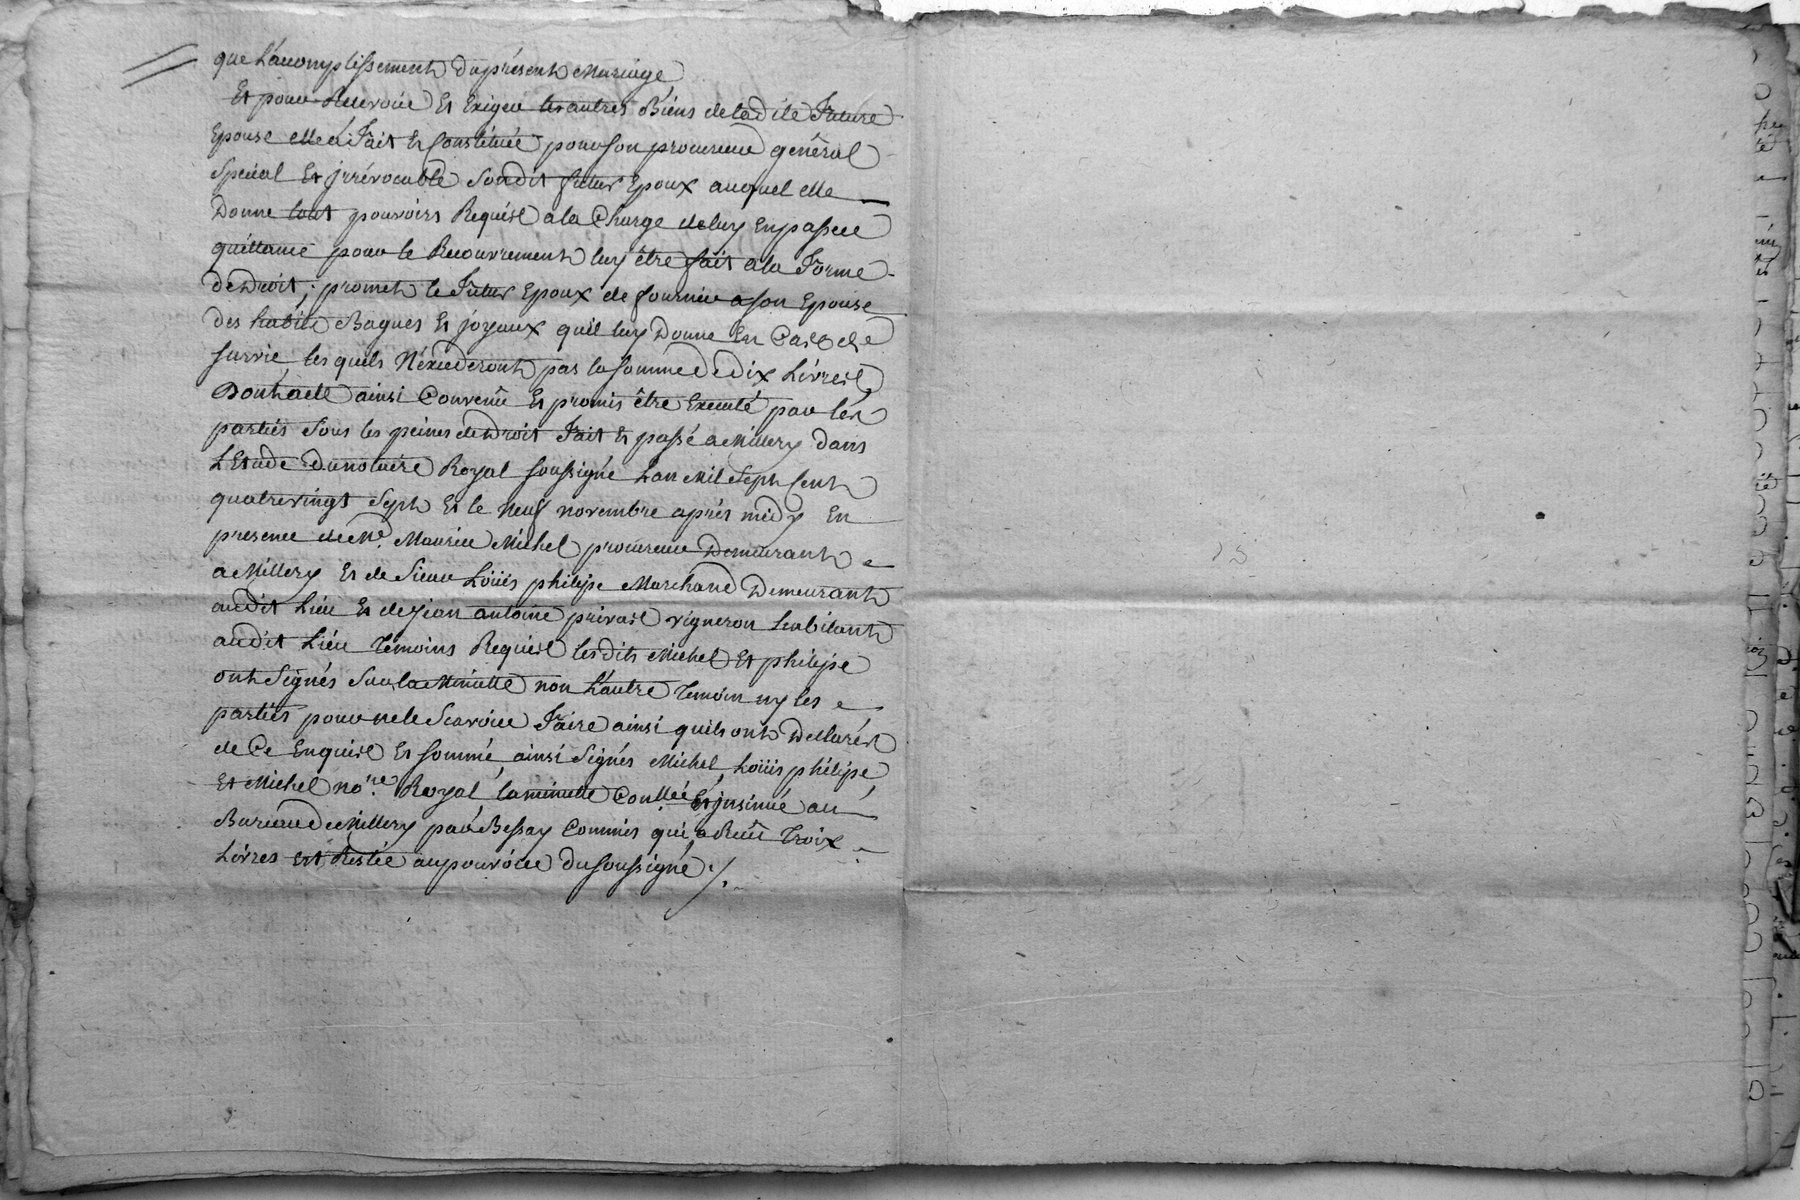 que L'acomplissement du présent Mariage
Et pour Recevoir Et Exiger les autres Biens de ladite Future
Epouse elle a Fait Et Constitué pour son procureur général
Spécial Et jrrévocable Son dit futur Epoux auquel elle
Donne tout pouvoirs Requist a la Charge de luy En passer
quittance pour le Recouvrement luy être fait a la Forme
de Droit, promet le Futur Epoux de fournir a son Epouse
des habits Bagues Et joyaux quil luy Donne En Cas de
survie les quels N'éxcederont pas la somme de dix Livres
Dont acte ainsi Convenû Et promis être Executé par les
parties Sous les peines de Droit Fait Et passé a Millery dans
L'Etude du notaire Royal soussigné L'an Mil Sept Cent
quatrevingt Sept Et le Neuf novembre après midy En
presence de Me. Maurice Michel procureur Demeurant
a Millery Et de Sieur Loüis philipe Marchand Demeurant
audit Lieu Et de jean antoine privast vigneron habitant
audit Lieu Temoins Requist les dits Michel Et philipe
ont Signés Sur la Minutte non L'autre Temoin ny les
parties pour ne le Scavoir Faire ainsi quils ont Declarés
de Ce Enquist Et sommé, ainsi Signés Michel, Loüis philipe,
Et Michel nore. Royal, la minutte Conllée Et jnsinué au
Bureau de Millery par Bessay Commis qui a Reçû Troix
Livres est Restée au pouvoir du soussigné ./.